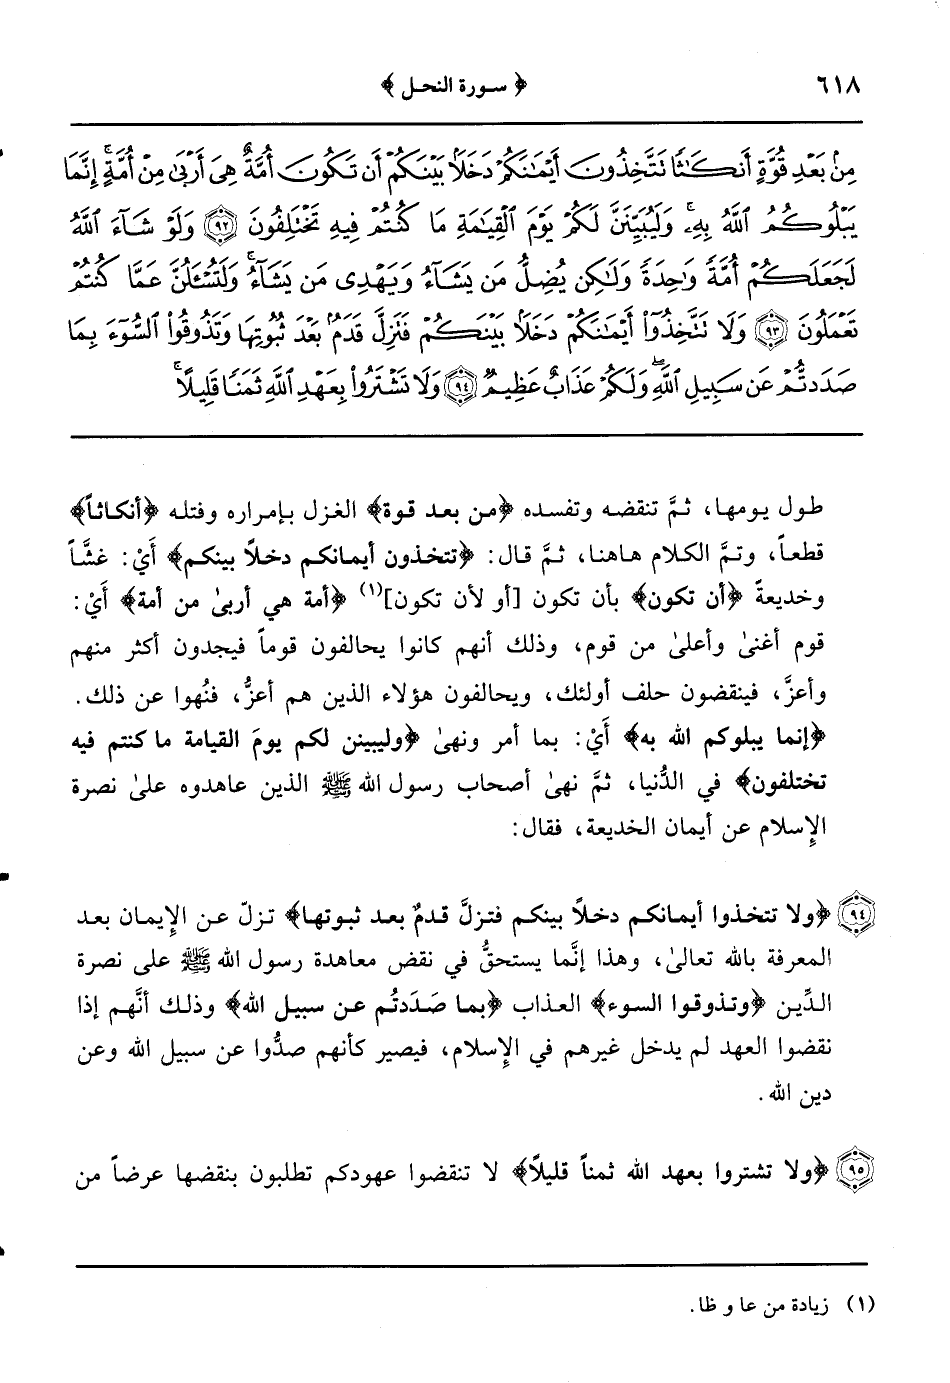 ٦١٨ ﴿ سورة النحل ﴾
مِنۢ بَعْدِ قُوَّةٍ أَنكَٰثًا تَتَّخِذُونَ أَيْمَٰنَكُمْ دَخَلًۢا بَيْنَكُمْ أَن تَكُونَ أُمَّةٌ هِىَ أَرْبَىٰ مِنْ أُمَّةٍ ۚ إِنَّمَا
يَبْلُوكُمُ ٱللَّهُ بِهِۦ ۚ وَلَيُبَيِّنَنَّ لَكُمْ يَوْمَ ٱلْقِيَٰمَةِ مَا كُنتُمْ فِيهِ تَخْتَلِفُونَ ٩٢ وَلَوْ شَآءَ ٱللَّهُ
لَجَعَلَكُمْ أُمَّةً وَٰحِدَةً وَلَٰكِن يُضِلُّ مَن يَشَآءُ وَيَهْدِى مَن يَشَآءُ ۚ وَلَتُسْـَٔلُنَّ عَمَّا كُنتُمْ
تَعْمَلُونَ ٩٣ وَلَا تَتَّخِذُوٓا۟ أَيْمَٰنَكُمْ دَخَلًۢا بَيْنَكُمْ فَتَزِلَّ قَدَمٌۢ بَعْدَ ثُبُوتِهَا وَتَذُوقُوا۟ ٱلسُّوٓءَ بِمَا
صَدَدتُّمْ عَن سَبِيلِ ٱللَّهِ ۖ وَلَكُمْ عَذَابٌ عَظِيمٌ ٩٤ وَلَا تَشْتَرُوا۟ بِعَهْدِ ٱللَّهِ ثَمَنًا قَلِيلًا ۚ
طول يومها، ثمَّ تنقضه وتفسده ﴿من بعد قوة﴾ الغزل بإمراره وفتله ﴿أنكاثاً﴾
قطعاً، وتمَّ الكلام هاهنا، ثمَّ قال: ﴿تتخذون أيمانكم دخلاً بينكم﴾ أَيْ: غشَّاً
وخديعةً ﴿أن تكون﴾ بأن تكون [أو لأن تكون](١) ﴿أمة هي أربىٰ من أمة﴾ أَيْ:
قوم أغنىٰ وأعلىٰ من قوم، وذلك أنهم كانوا يحالفون قوماً فيجدون أكثر منهم
وأعزَّ، فينقضون حلف أولئك، ويحالفون هؤلاء الذين هم أعزُّ، فنُهوا عن ذلك.
﴿إنما يبلوكم الله به﴾ أَيْ: بما أمر ونهىٰ ﴿وليبينن لكم يومَ القيامة ما كنتم فيه
تختلفون﴾ في الدُّنيا، ثمَّ نهىٰ أصحاب رسول الله ﷺ الذين عاهدوه علىٰ نصرة
الإِسلام عن أيمان الخديعة، فقال:
٩٤ ﴿ولا تتخذوا أيمانكم دخلاً بينكم فتزلَّ قدمٌ بعد ثبوتها﴾ تزلّ عن الإِيمان بعد
المعرفة بالله تعالىٰ، وهذا إنَّما يستحقُّ في نقض معاهدة رسول الله ﷺ على نصرة
الدِّين ﴿وتذوقوا السوء﴾ العذاب ﴿بما صَدَدتُم عن سبيل الله﴾ وذلك أنَّهم إذا
نقضوا العهد لم يدخل غيرهم في الإِسلام، فيصير كأنهم صدُّوا عن سبيل الله وعن
دين الله.
٩٥ ﴿ولا تشتروا بعهد الله ثمناً قليلاً﴾ لا تنقضوا عهودكم تطلبون بنقضها عرضاً من
(١) زيادة من عا و ظا.